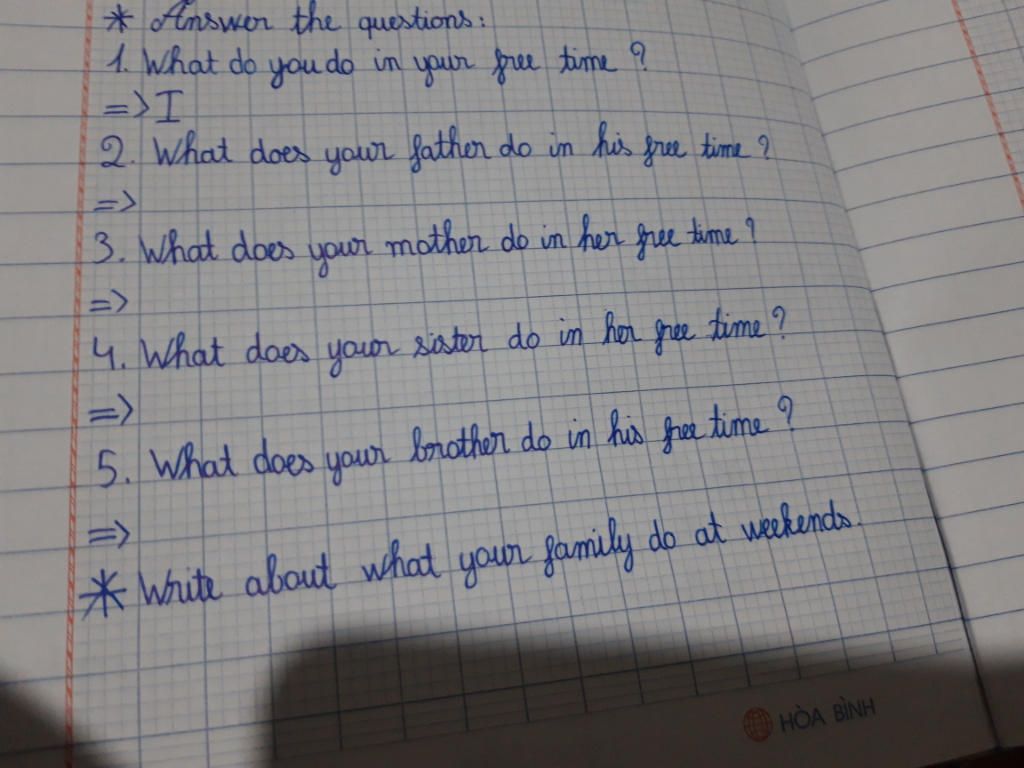 * Answer the questions:
1. What do you do in your free time ?
=> I
2. What does your father do in his free time ?
=>
3. What does your mother do in her free time ?
=>
4. What does your sister do in her free time ?
=>
5. What does your brother do in his free time ?
=>
* Write about what your family do at weekends.
HÒA BÌNH